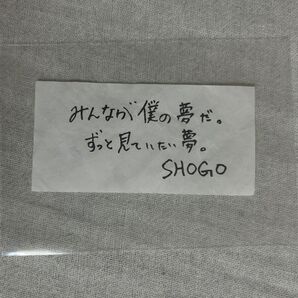 みんなが僕の夢だ。
ずっと見ていたい夢。
SHOGO